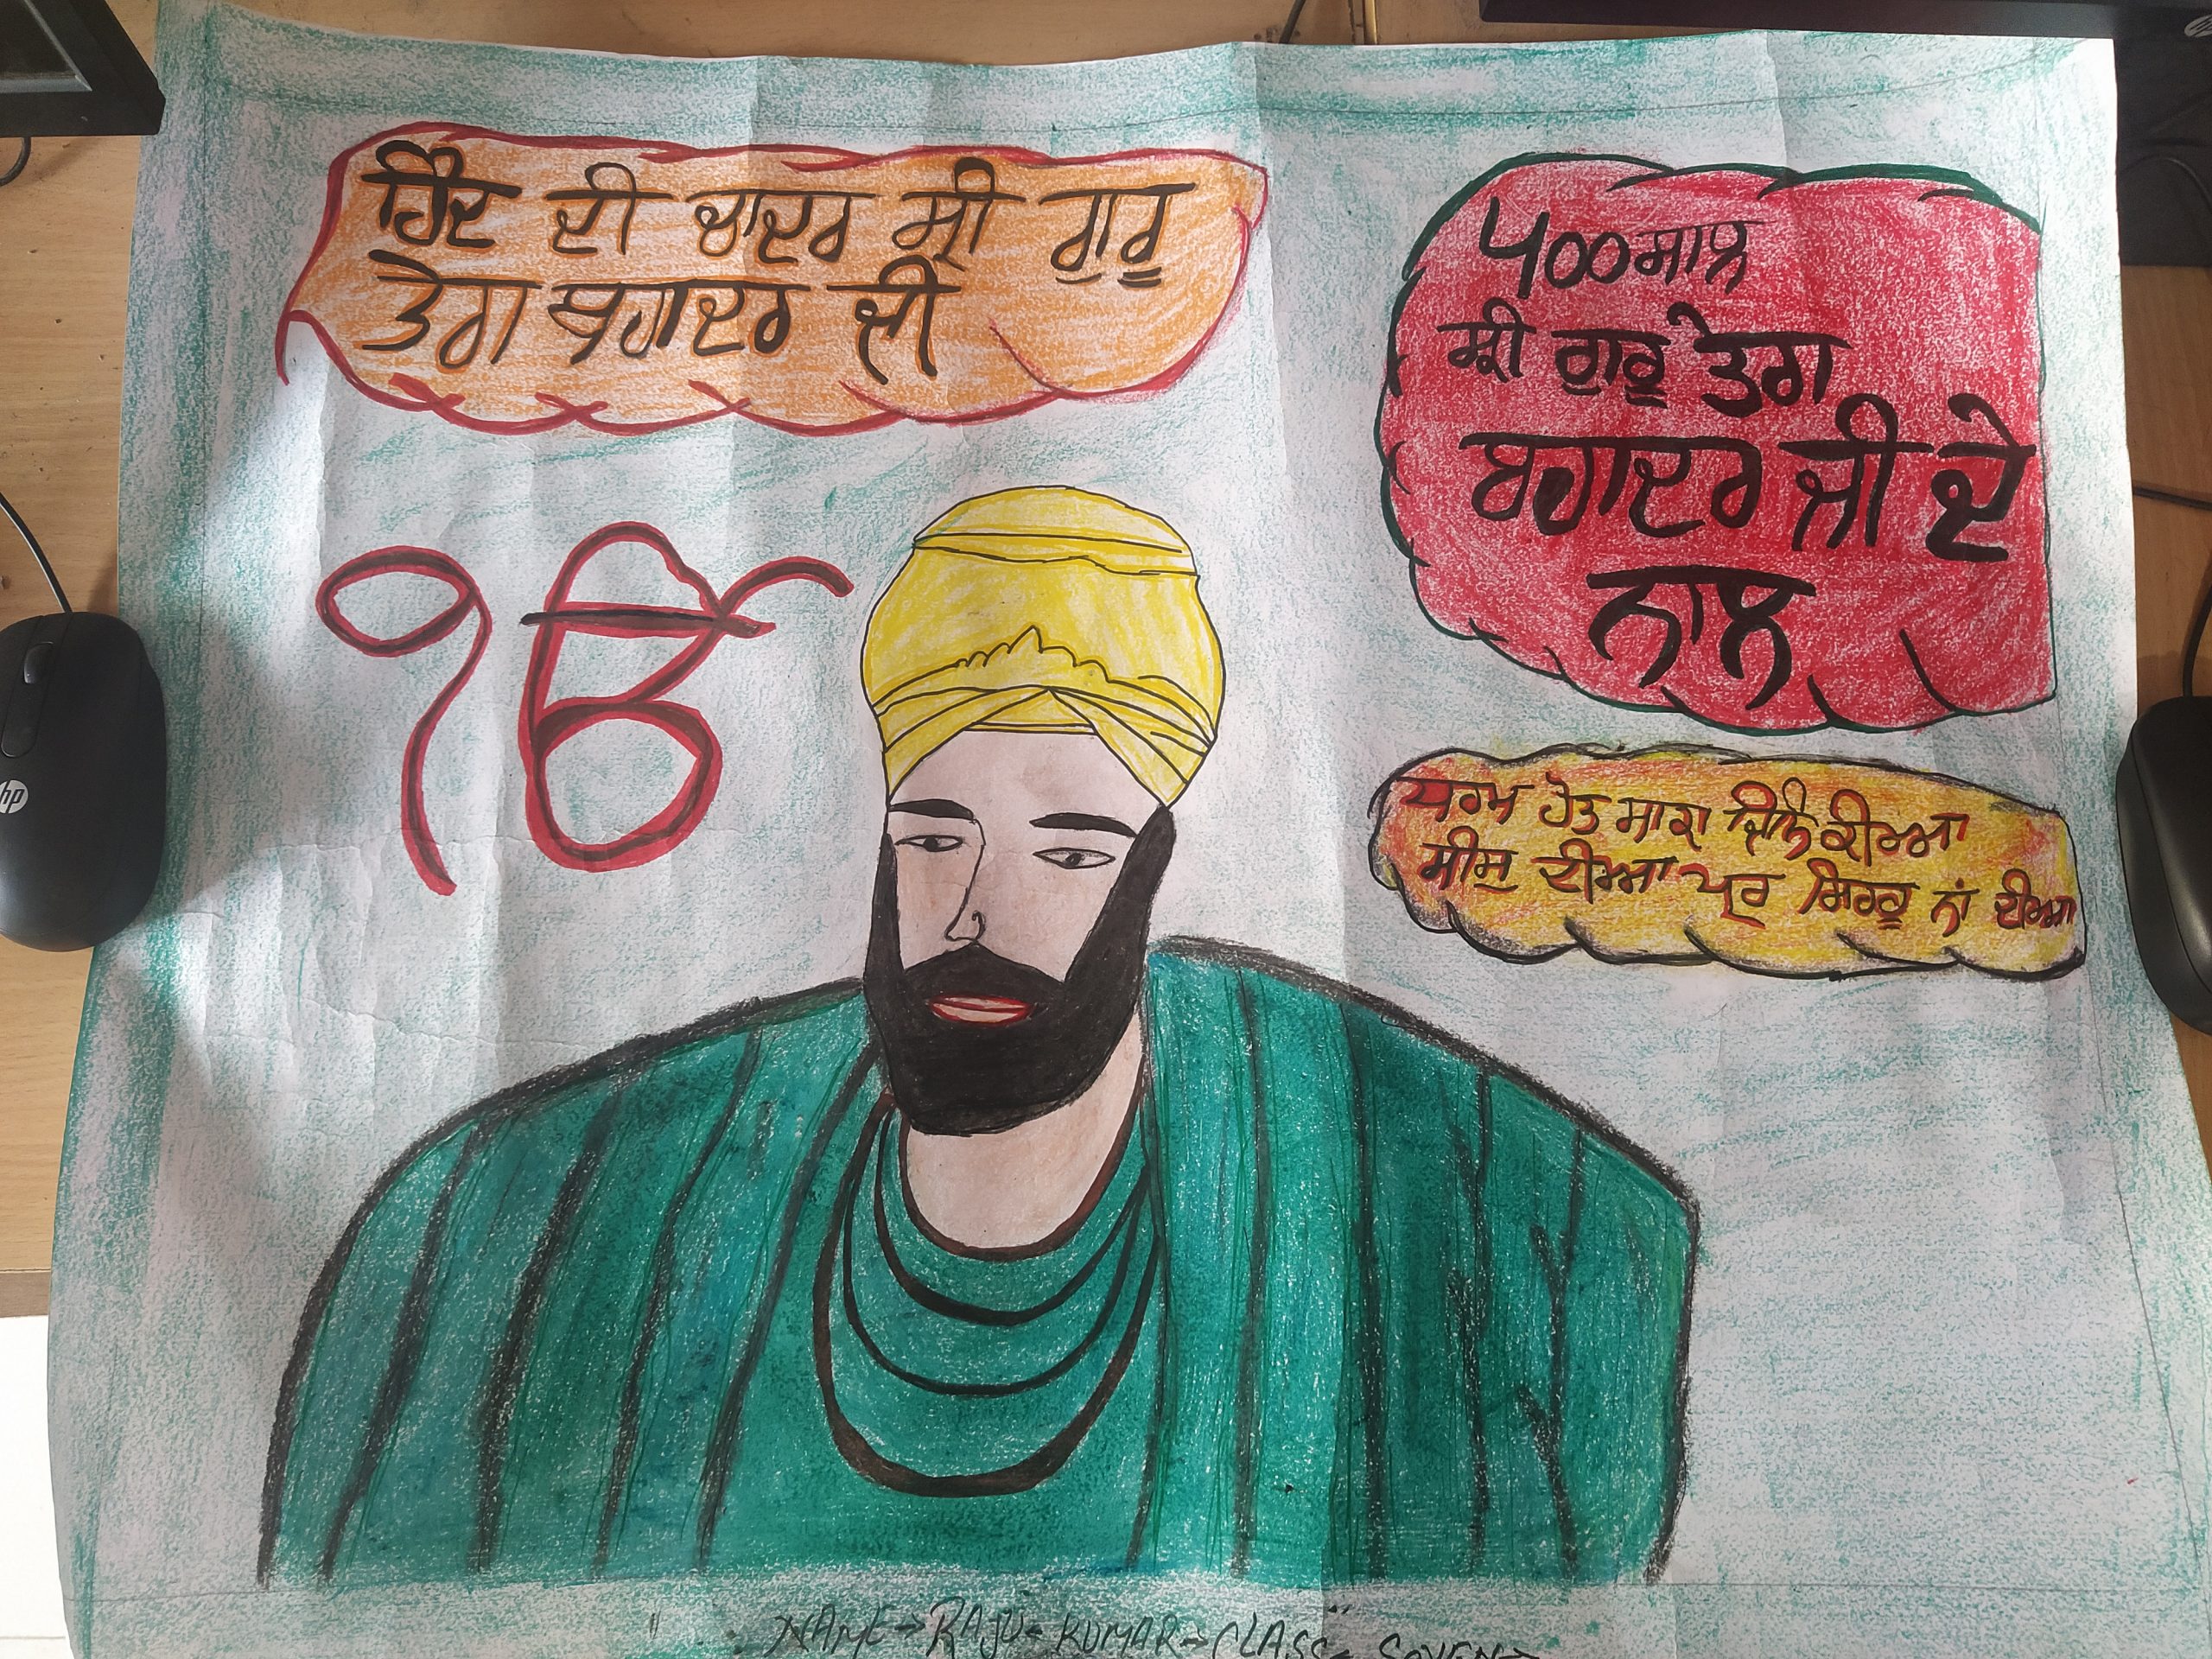 ਹਿੰਦ ਦੀ ਚਾਦਰ ਸ੍ਰੀ ਗੁਰੂ
ਤੇਗ ਬਹਾਦਰ ਜੀ
੫੦੦ਸਾਲ
ਸ੍ਰੀ ਗੁਰੂ ਤੇਗ
ਬਹਾਦਰ ਜੀ ਦੇ
ਨਾਲ
ੴ
ਧਰਮ ਹੇਤ ਸਾਕਾ ਜਿਨਿ ਕੀਆ
ਸੀਸੁ ਦੀਆ ਪਰੁ ਸਿਰਰੁ ਨਾਂ ਦੀਆ
NAME→RAJU-KUMAR→CLASS- SEVEN→
hp